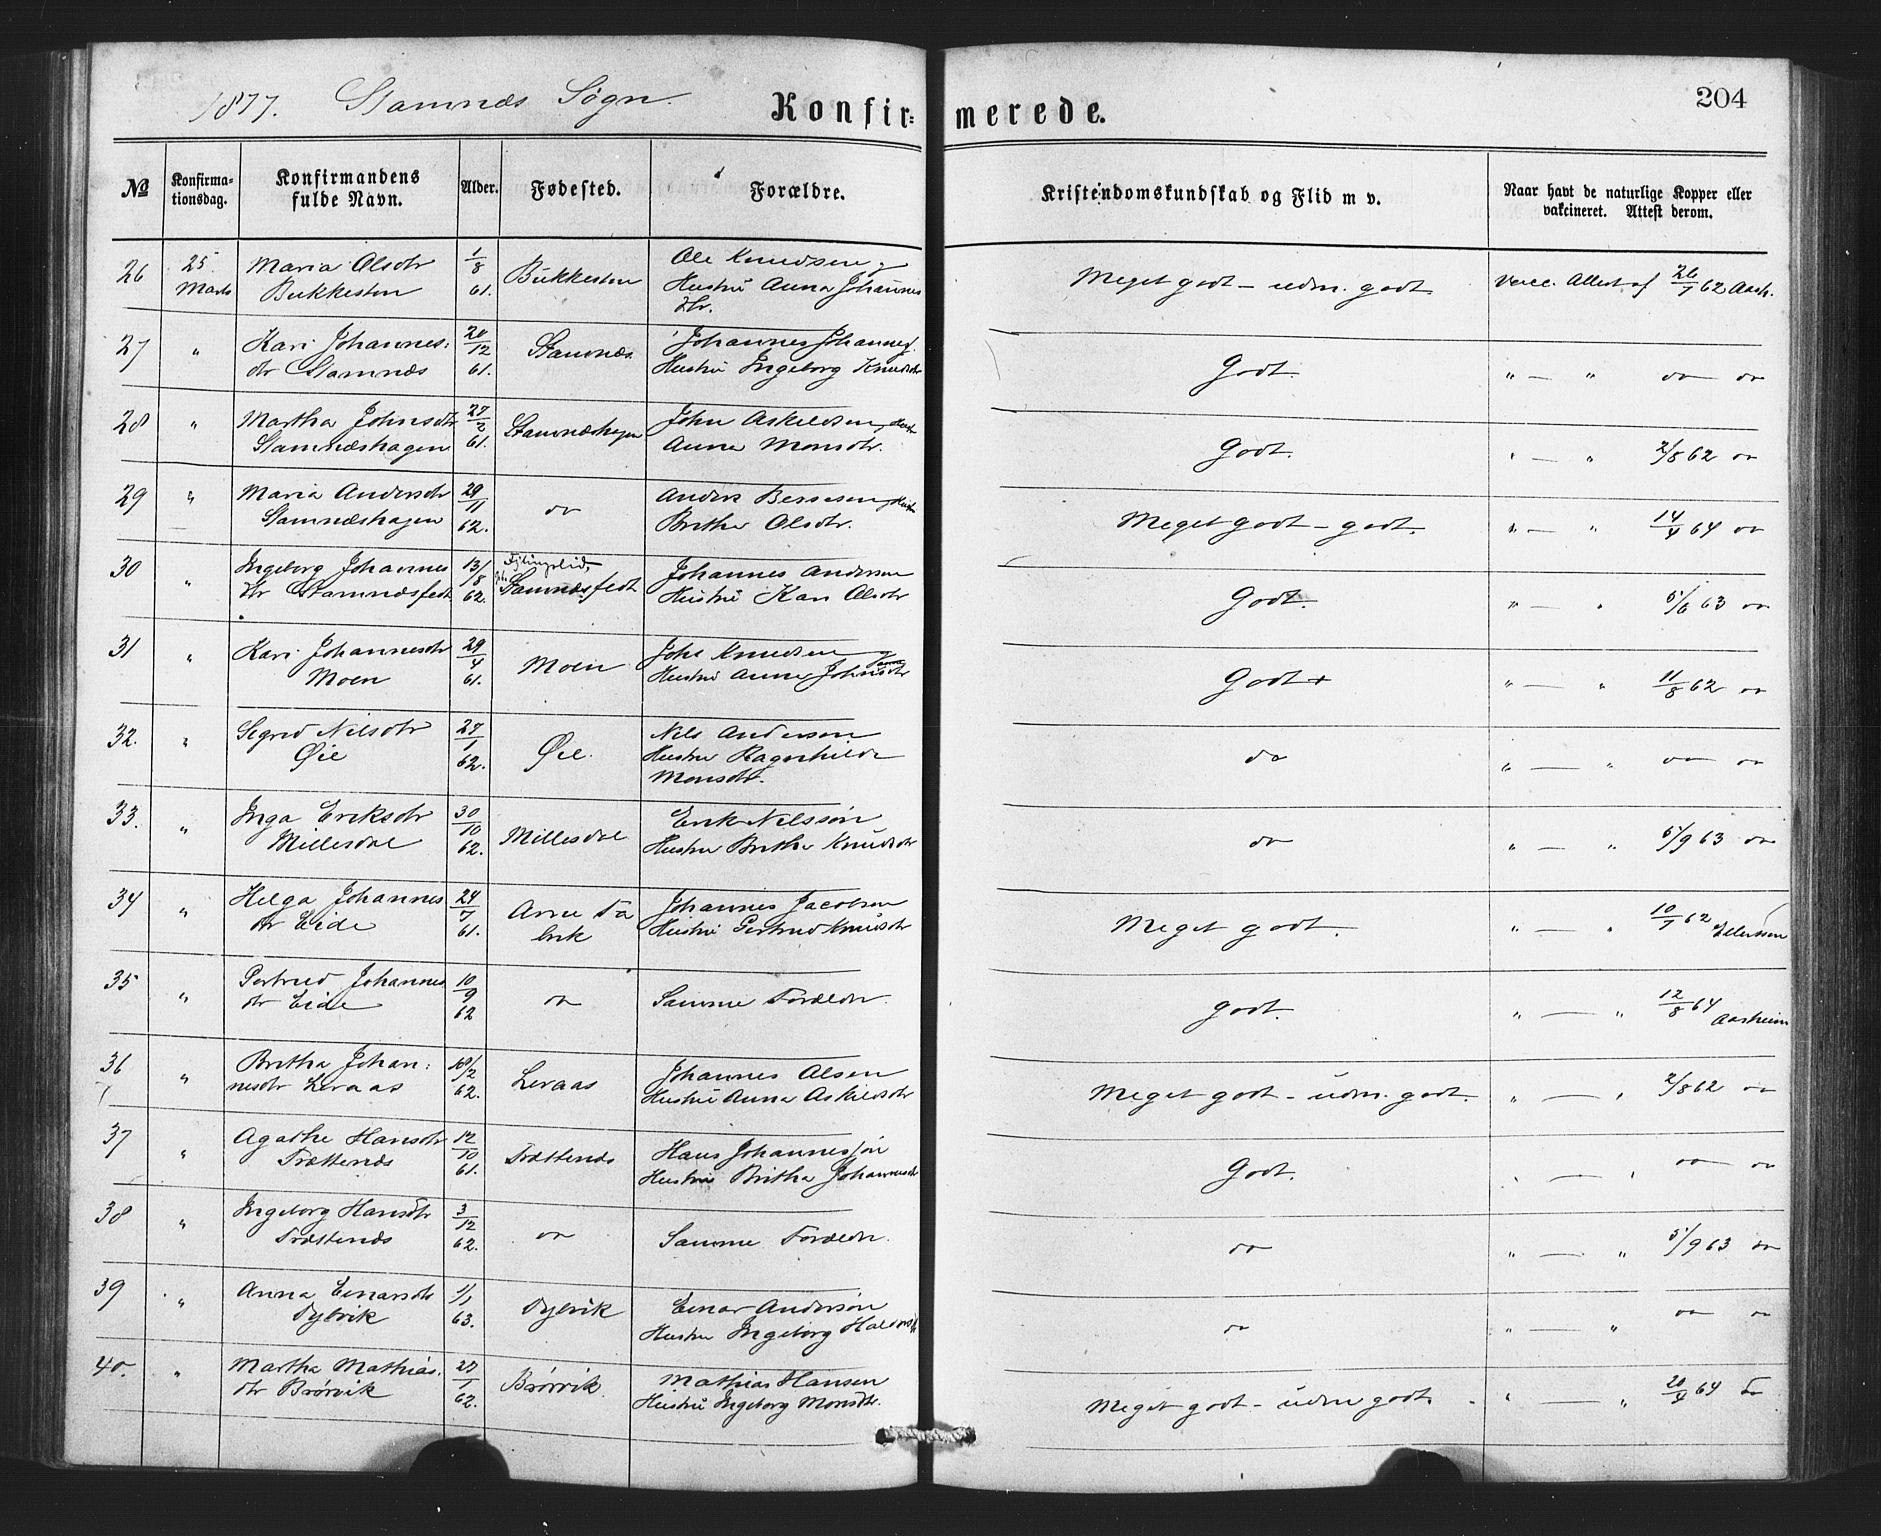 1877. Stamnæs Sogn.
Konfirmerede.
204
No
Konfirma-
tionsdag.
Konfirmandens
fulde Navn.
Alder.
Fødested.
Forældre.
Kristendomskundskab og Flid m v.
Naar havt de naturlige Kopper eller
vakcineret. Attest derom.
26 25 Maria Olsdtr 1/8 Bukkesten Ole Knudsen
Marts Bukkesten 61. Hustru Anna Johannes
dtr.
Meget godt - udm. godt. Vacc. Attest af 26/7 62 Aash.
27 " Kari Johannes: 20/12 Stamnæs Johannes Johannes.
dtr Stamnæs 61. Hustru Ingeborg Knudsdtr
Godt. " — " do do
28 " Martha Johnsdtr 27/2 Stamnæshagen John Askeldsen
Stamnæshagen 61. Anna Monsdtr.
Godt. " — " 2/8 62 do
29 " Maria Andersdtr 29/11 do Anders
Stamnæshagen 62. Brithe Olsdtr.
Meget godt - godt. " — " 14/4 64 do
30 " Ingeborg Johannes 13/8 Stamnæsfedt Johannes Andersen
dtr Stamnæsfedt 62. Hustru Kari Olsdtr
Godt. " — " 5/6 63 do
31 " Kari Johannesdtr 29/4 Moen Johs Knudsen
Moen 61. Hustru Anna Johnsdtr
Godt + " — " 11/8 62 do
32. " Sigrid Nilsdtr 27/1 Øie. Nils Anderson
Øie 62. Hustru Ragnhilde
Monsdtr.
do " — " do do
33. " Inga Eriksdtr 30/10 Millesdal Erik Nilsson
Millesdal 62. Hustru Brithe Knudsdtr
do " — " 5/9 63 do
34 " Helga Johannes 24/7 Arne Fa Johannes Jacobsen
dtr Eide 61. brik Hustru Gertrud Knudsdtr
Meget godt. " — " 10/7 62 Ellertsen
35 " Gertrud Johannes 10/9 do Samme Forældr.
dtr Eide 62
godt. " — " 12/8 64 Aasheim
36 " Britha Johan: 18/2 Leraas Johannes Olsen
nesdtr Leraas 62. Hustru Anna Askildsdtr
Meget godt - udm. godt. " — " 2/8 62 do
37 " Agathe Hansdtr 12/10 Trættenæs Hans Johannessøn
Trættenæs 61. Hustru Britha Johannesdtr
Godt. " — " do do
38 " Ingeborg Hansdtr 3/12 do Samme Forældr.
Trættenæs 62.
do " — " 5/9 63 do
39 " Anna Einarsdtr 1/1 Dyvik Einar Anderson
Dyvik 63. Hustru Ingeborg
do " — " do do
40. " Martha Mathias. 27/1 Brørvik. Mathias Hansen
dtr Brørvik 62. Hustru Ingeborg Monsdtr.
Meget godt - udm godt. " — " 20/4 64